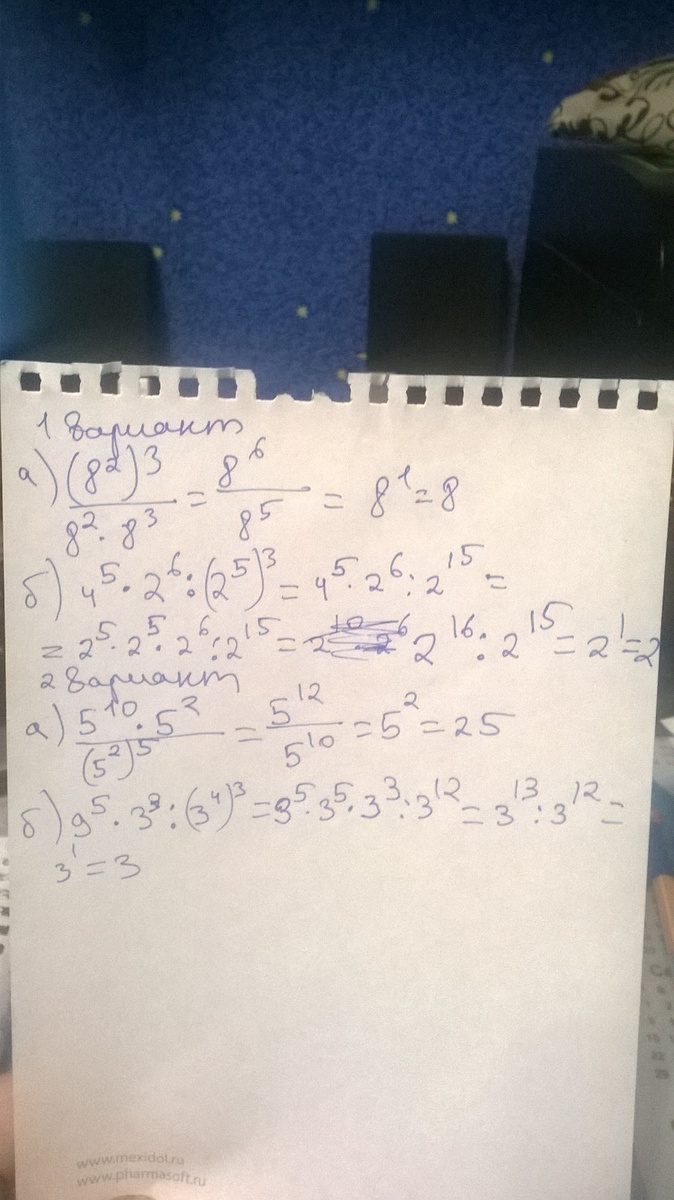 1 вариант
а) (8²)³ / 8² · 8³ = 8⁶ / 8⁵ = 8¹ = 8
б) 4⁵ · 2⁶ : (2⁵)³ = 4⁵ · 2⁶ : 2¹⁵ =
= 2⁵ · 2⁵ · 2⁶ : 2¹⁵ = 2¹⁶ : 2¹⁵ = 2¹ = 2
2 вариант
а) 5¹⁰ · 5² / (5²)⁵ = 5¹² / 5¹⁰ = 5² = 25
б) 9⁵ · 3³ : (3⁴)³ = 3⁵ · 3⁵ · 3³ : 3¹² = 3¹³ : 3¹² =
3¹ = 3
www.mexidol.ru
www.pharmasoft.ru